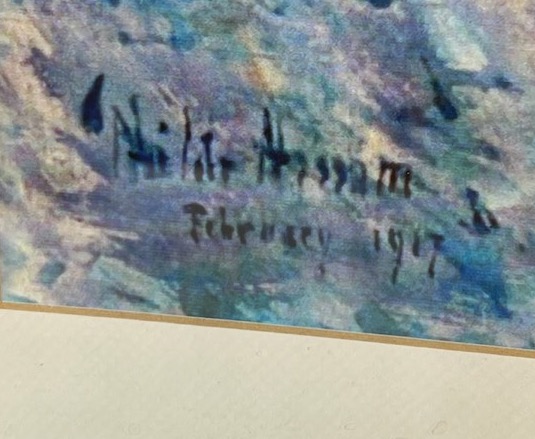 Childe Hassam
February 1917